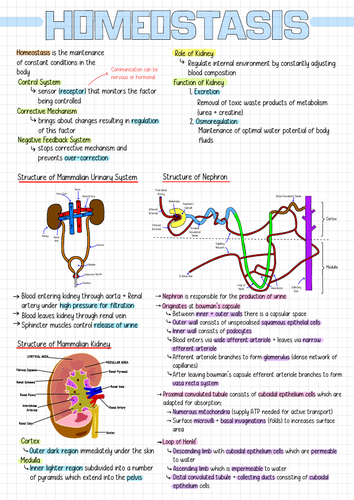 HOMEOSTASIS
Homeostasis is the maintenance
of constant conditions in the
body
Communication can be
nervous of hormonal
Control System
↳ sensor (receptor) that monitors the factor
being controlled
Corrective Mechanism
↳ brings about changes resulting in regulation
of this factor
Negative Feedback System
↳ stops corrective mechanism and
prevents over-correction
Role of Kidney
↳ Regulate internal environment by constantly adjusting
blood composition
Function of Kidney
1. Excretion
Removal of toxic waste products of metabolism
(urea + creatine)
2. Osmoregulation
Maintenance of optimal water potential of body
fluids
Structure of Mammalian Urinary System
→ Blood entering kidney through aorta + Renal
artery under high pressure for filtration
→ Blood leaves kidney through renal vein
→ Sphincter muscles control release of urine
Structure of Mammalian Kidney
CORTEX AREA
MEDULLA AREA
Renal Pyramid
Renal Vein
Renal Artery
Ureter
Cortex
↳ Outer dark region immediately under the skin
Medulla
↳ Inner lighter region subdivided into a number
of pyramids which extend into the pelvis
Structure of Nephron
Cortex
Medulla
→ Nephron is responsible for the production of urine
→ Originates at bowman's capsule
↳ Between inner + outer walls there is a capsular space
↳ Outer wall consists of unspecialised squamous epithelial cells
↳ Inner wall consists of podocytes
↳ Blood enters via wide afferent arteriole + leaves via narrow
efferent arteriole
↳ Afferent arteriole branches to form glomerulus (dense network of
capillaries)
↳ After leaving bowman's capsule efferent arteriole branches to form
vasa recta system
→ Proximal convoluted tubule consists of cuboidal epithelial cells which are
adapted for absorption;
↳ Numerous mitochondria (supply ATP needed for active transport)
↳ Surface microvilli + basal invaginations (folds) to increases surface
area
→ Loop of Henlé
↳ Descending limb with cuboidal epithelial cells which are permeable
to water
↳ Ascending limb which is impermeable to water
↳ Distal convoluted tubule + collecting ducts consisting of cuboidal
epithelial cells